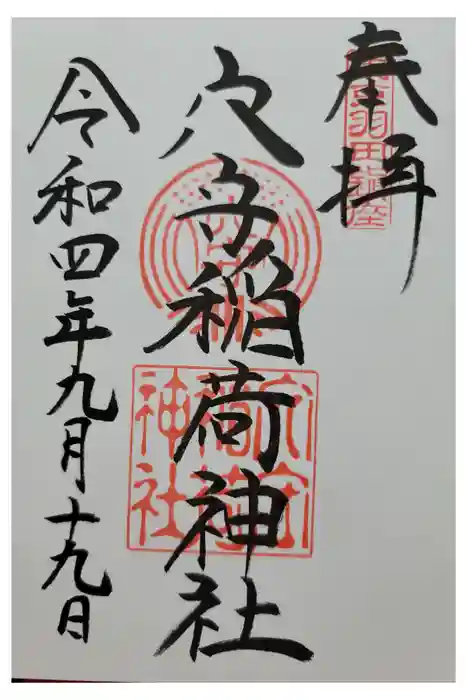 奉拝
東京羽田鎮座
穴守稲荷神社
穴守
稲荷
神社
令和四年九月十九日